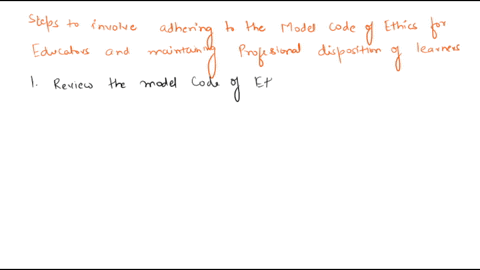 Steps to involve adhering to the Model Code of Ethics for
Educators and maintaining Professional disposition of learners
1. Review the model Code of Et